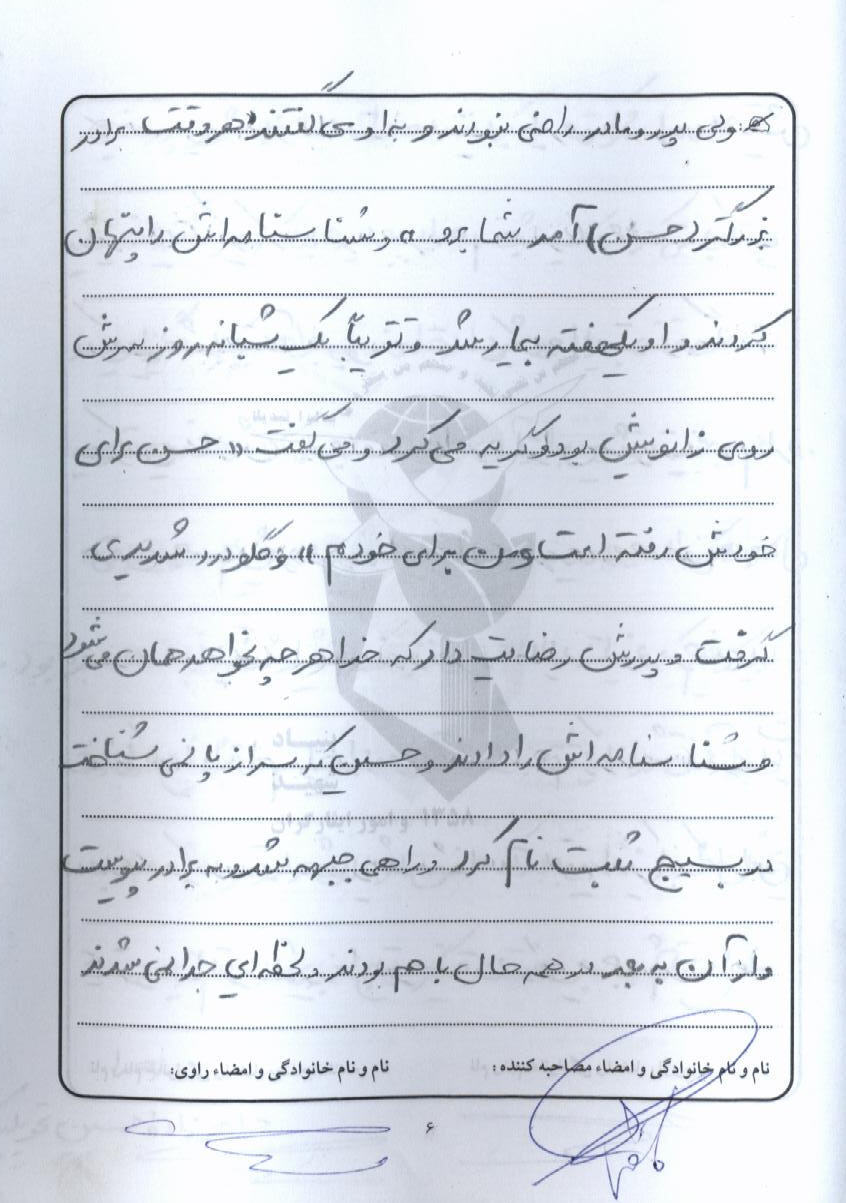 ولی پدر و مادر راضی نبودند و به او می گفتند «هر وقت برادر
بزرگتر (حسن) آمد شما برو» و شناسنامه اش را پنهان
کردند و او یکهفته بیمار شد و تقریباً یک شبانه روز سرش
روی زانویش بود و گریه می کرد و می گفت «حسن برای
خودش رفته است و من برای خودم» و گلودرد شدیدی
گرفت و پدرش رضایت داد که خدا هر چه بخواهد همان می شود
و شناسنامه اش را دادند و حسین که سر از پا نمی شناخت
در بسیج ثبت نام کرد و راهی جبهه شد و به برادر پیوست
و از آن به بعد در همه حال با هم بودند و لحظه ای جدا نمی شدند
نام و نام خانوادگی و امضاء مصاحبه کننده : نام و نام خانوادگی و امضاء راوی:
۶